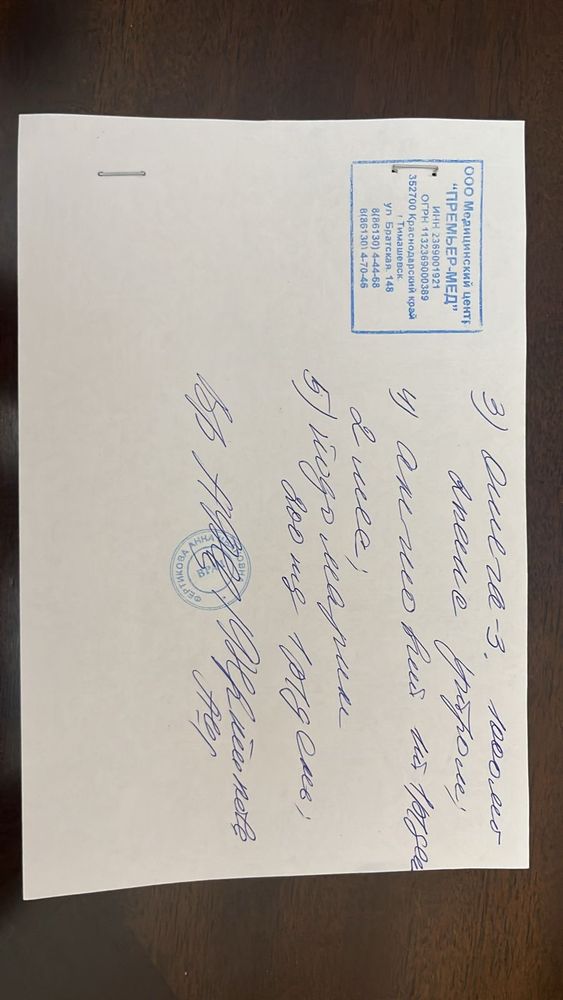 ООО Медицинский центр
"ПРЕМЬЕР-МЕД"
ИНН 2369001921
ОГРН 1132369000389
352700 Краснодарский край
г Тимашевск
ул Братская, 148
8(86130) 4-44-68
8(86130) 4-70-46
3) Омега-3. 1000мг
утром;
4)
2 мес;
5) Йодомарин
200 мкг 1р/день;
Вр
ФЕРТИКОВА АННА
ВРАЧ